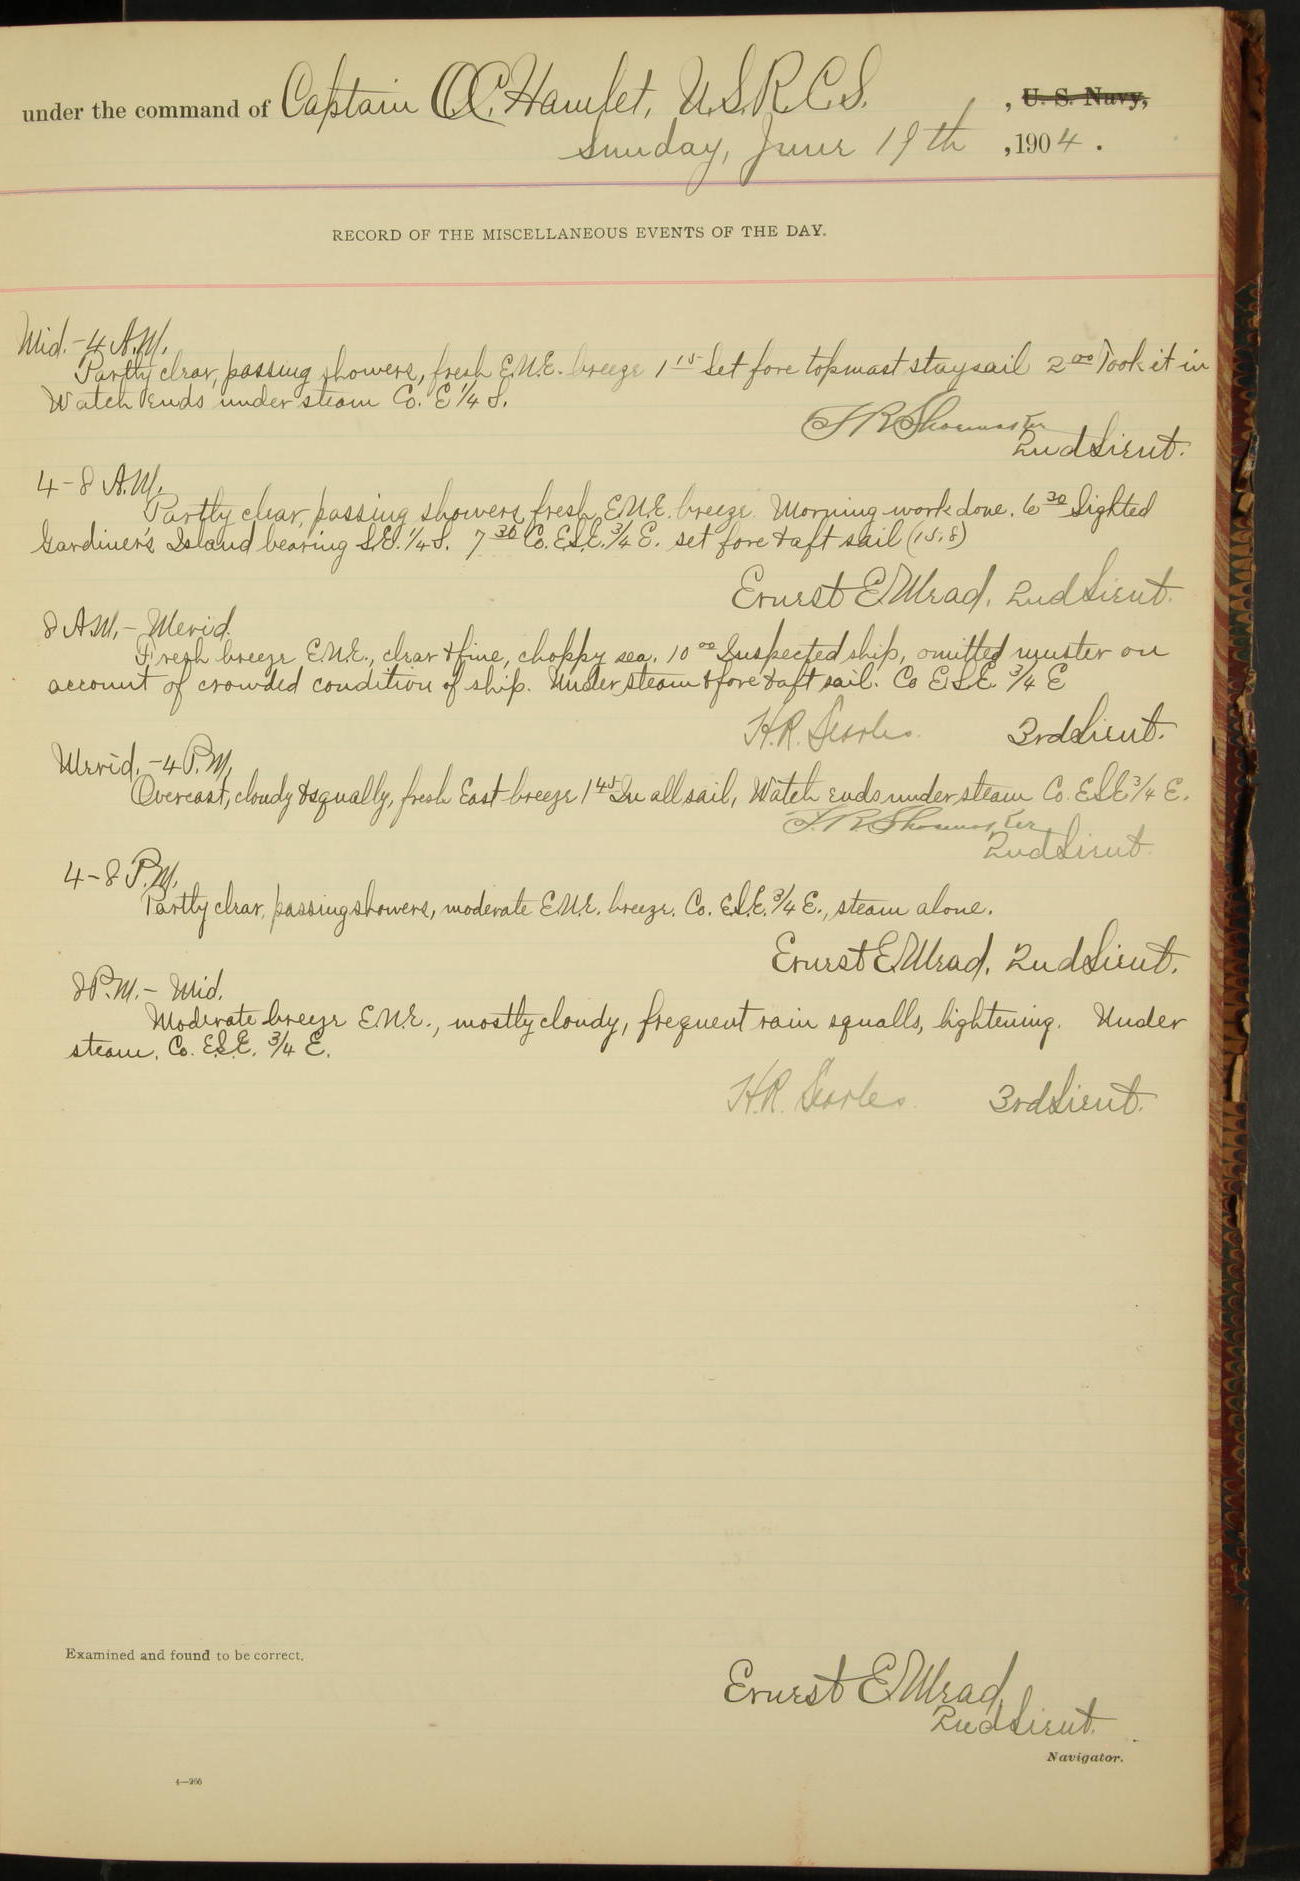 under the command of Captain O.C. Hamlet, U.S.R.C.S. , U. S. Navy,
Sunday, June 19th , 1904 .
RECORD OF THE MISCELLANEOUS EVENTS OF THE DAY.
Mid. - 4 A.M.
Partly clear, passing showers, fresh E.N.E. breeze 1 15 Set fore topmast staysail 2 00 Took it in
Watch ends under steam Co. E 1/4 S.
F R Shoemaker
2nd Lieut.
4 - 8 A.M.
Partly clear, passing showers, fresh E.N.E. breeze. Morning work done. 6 30 Sighted
Gardiner's Island bearing S.E. 1/4 S. 7 30 Co. E.S.E. 3/4 E. set fore & aft sail (15.8)
Ernest E. Mead, 2nd Lieut.
8 A.M. - Merid.
Fresh breeze E.N.E., clear & fine, choppy sea. 10 00 Inspected ship, omitted muster on
account of crowded condition of ship. Under steam & fore & aft sail. Co E.S.E. 3/4 E
H.R. Searles. 3rd Lieut.
Merid. - 4 P.M.
Overcast, cloudy & squally, fresh East breeze 1 45 In all sail, Watch ends under steam Co. E.S.E 3/4 E.
F. R Shoemaker
2nd Lieut.
4 - 8 P.M.
Partly clear, passing showers, moderate E.N.E. breeze. Co. E.S.E. 3/4 E., steam alone.
Ernest E. Mead, 2nd Lieut.
8 P.M. - Mid.
Moderate breeze E.N.E., mostly cloudy, frequent rain squalls, lightening. Under
steam. Co. E.S.E. 3/4 E.
H.R. Searles. 3rd Lieut.
Examined and found to be correct.
Ernest E. Mead,
2nd Lieut.
Navigator.
4—266